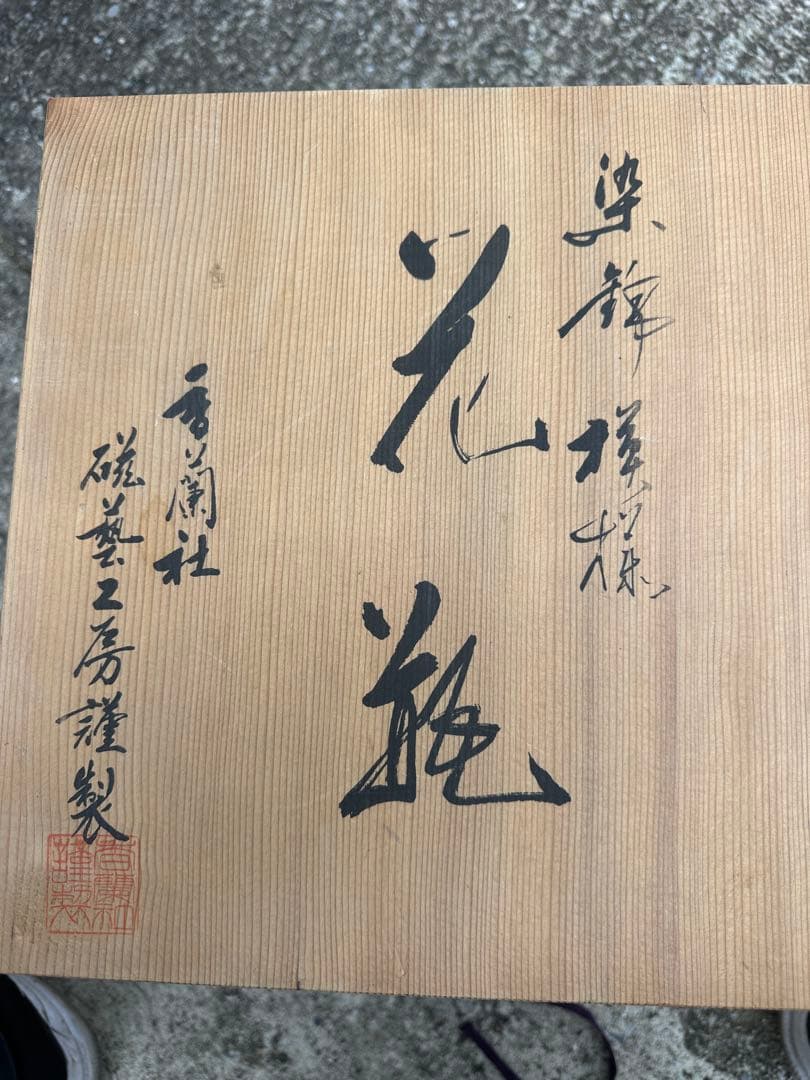 染錦模様
花瓶
香蘭社
磁藝工房謹製
香蘭社
謹製